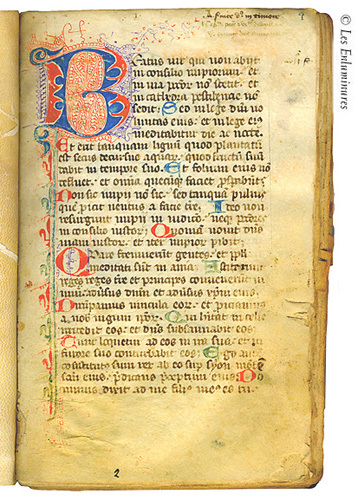 BEatus uir qui non abiit
in consilio impiorum et
in uia no stetit et
in cathedra pestilencie no
sedit Sed in lege dni uo
luntas eius et in lege eius
meditabitur die ac nocte
Et erit tanquam lignum quod plantatum
est secus decursus aquarum quod fructum suum
dabit in tempore suo Et folium eius non
defluet et omnia quecumque faciet
Non sic impii no sic sed tanquam puluis
que proicit uentus a facie terre Ideo non
resurgunt impii in iudicio neque
in consilio iustorum Quoniam nouit dns
uiam iustorum et iter impiorum peribit
Quare fremuerunt gentes et ppli
meditati sunt inania Astiterunt
reges terre et principes conuenerunt in
unum aduersus dnm et aduersus xpm eius
Dirumpamus uincula eorum et proiciamus
a nobis iugum ipsorum Qui habitat in celis
irridebit eos et dns subsannabit eos
Tunc loquetur ad eos in ira sua et in
furore suo conturbabit eos Ego autem
constitutus sum rex ab eo super syon montem
sanctum eius predicans preceptum eius Do
minus dixit ad me filius meus es tu
2
© Les Enluminures